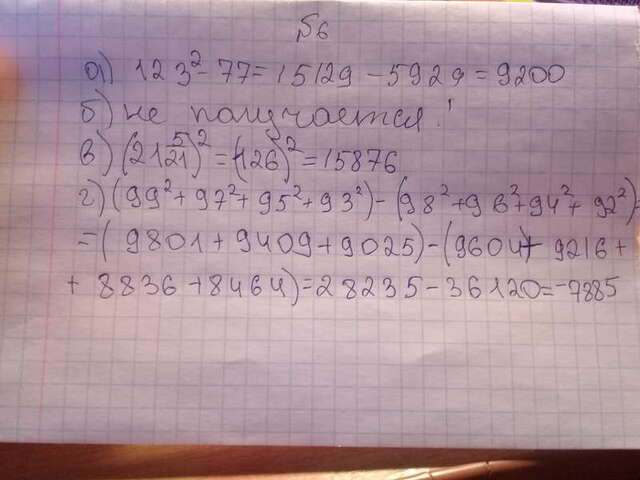 №6
а) 123² - 77 = 15129 - 5929 = 9200
б) не получается!
в) (21 5/21)² = (126)² = 15876
г) (99² + 97² + 95² + 93²) - (98² + 96² + 94² + 92²)
= (9801 + 9409 + 9025) - (9604 + 9216 +
+ 8836 + 8464) = 28235 - 36120 = -7885